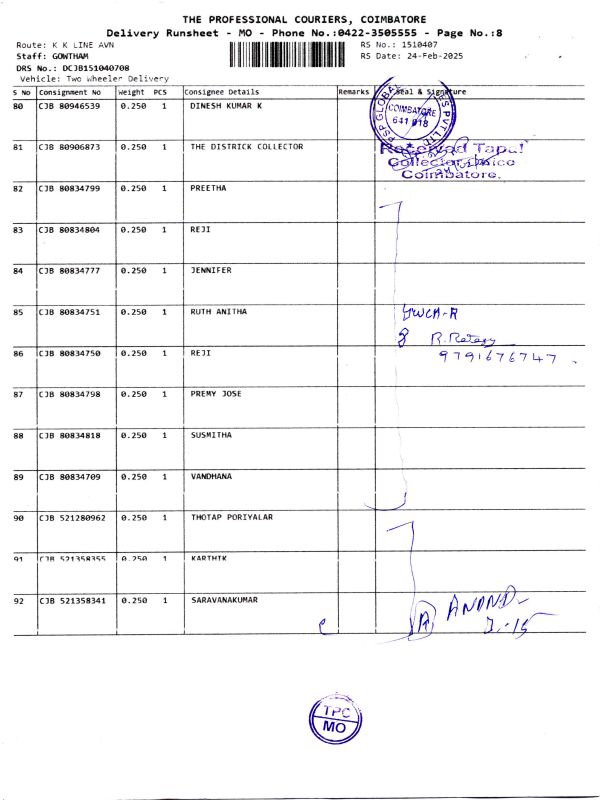 THE PROFESSIONAL COURIERS, COIMBATORE
Delivery Runsheet - MO - Phone No.:0422-3505555 - Page No.:8
Route: K K LINE AVN RS No.: 1510407
Staff: GOWTHAM RS Date: 24-Feb-2025
DRS No.: DCJB151040708
Vehicle: Two Wheeler Delivery
S No Consignment No Weight PCS Consignee Details Remarks Seal & Signature
80 CJB 80946539 0.250 1 DINESH KUMAR K
PSP GLOBAL PVT LTD
COIMBATORE
641 018
81 CJB 80906873 0.250 1 THE DISTRICK COLLECTOR
Received Tapal
Collector
Coimbatore.
82 CJB 80834799 0.250 1 PREETHA
83 CJB 80834804 0.250 1 REJI
84 CJB 80834777 0.250 1 JENNIFER
85 CJB 80834751 0.250 1 RUTH ANITHA
86 CJB 80834750 0.250 1 REJI
9791676747
87 CJB 80834798 0.250 1 PREMY JOSE
88 CJB 80834818 0.250 1 SUSMITHA
89 CJB 80834709 0.250 1 VANDHANA
90 CJB 521280962 0.250 1 THOTAP PORIYALAR
91 CJB 521358355 0.250 1 KARTHIK
92 CJB 521358341 0.250 1 SARAVANAKUMAR
ANAND
TPC
MO